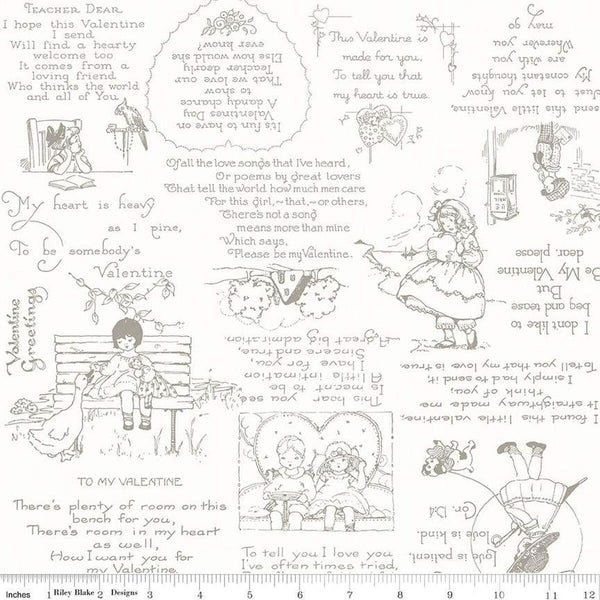 TEACHER DEAR
I hope this Valentine
I send
Will find a hearty
welcome too
It comes from a
loving friend
Who thinks the world
and all of You
It's fun to have on
Valentines Day
A dandy chance
to show
That we love our
Teacher dearly
Else how would she
ever know?
This Valentine is
made for you,
To tell you that
my heart is true.
send this little valentine,
Just to let you know
My constant thoughts
are with you
Wherever you
may go
Of all the love songs that I've heard,
Or poems by great lovers
That tell the world how much men care
For this girl, ~that, ~ or others,
There's not a song
means more than mine
Which says,
Please be my Valentine.
My heart is heavy
as I pine,
To be somebody's
Valentine
Valentine
Greetings
I don't like to
beg and tease
But
Be My Valentine
dear, please
This hear you see
Is meant to be
A little intimation
I have for you,
Sincere and true,
A great big admiration
I found this little valentine,
It straightway made me
think of you,
I simply had to send it,
To tell you that my love is true.
TO MY VALENTINE
There's plenty of room on this
bench for you,
There's room in my heart
as well,
How I want you for
my Valentine
To tell you I love you
I've often times tried,
Love is patient,
love is kind
Cor. 13:4
Inches 1 Riley Blake 2 Designs 3 4 5 6 7 8 9 10 11 12